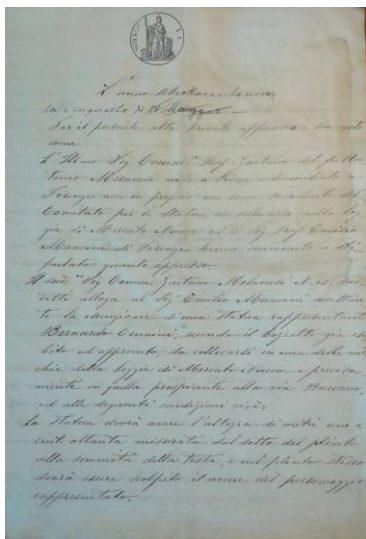 L'anno Milleottocentonovan
ta e in questo di 18 Maggio
Per il presente atto privato apparisce e sia noto
come
L'Illmo Sig. Comm. Prof. Gaetano del fu
Antonio Milanesi nato a Siena e domiciliato a
Firenze non in proprio ma come Presidente del
Comitato per le Statue da collocarsi nella Log
gia di Mercato Nuovo ed il Sig. Prof. Emilio
Mancini di Firenze hanno convenuto e sti
pulato quanto appresso.
Il Sig. Comm. Gaetano Milanesi
alloga al Sig. Emilio Mancini
la esecuzione di una statua rappresentante
Bernardo Cennini, secondo il bozzetto già esi
bito ed approvato, da collocarsi in una delle nic
chie della Loggia di Mercato Nuovo e precisa
mente in quella prospiciente alla via Baccano,
ed alle seguenti condizioni cioè:
La Statua dovrà avere l'altezza di metri uno e
cent. ottanta misurata dal sotto del plinto
alla sommità della testa, e nel plinto stesso
dovrà essere scolpito il nome del personaggio
rappresentato.